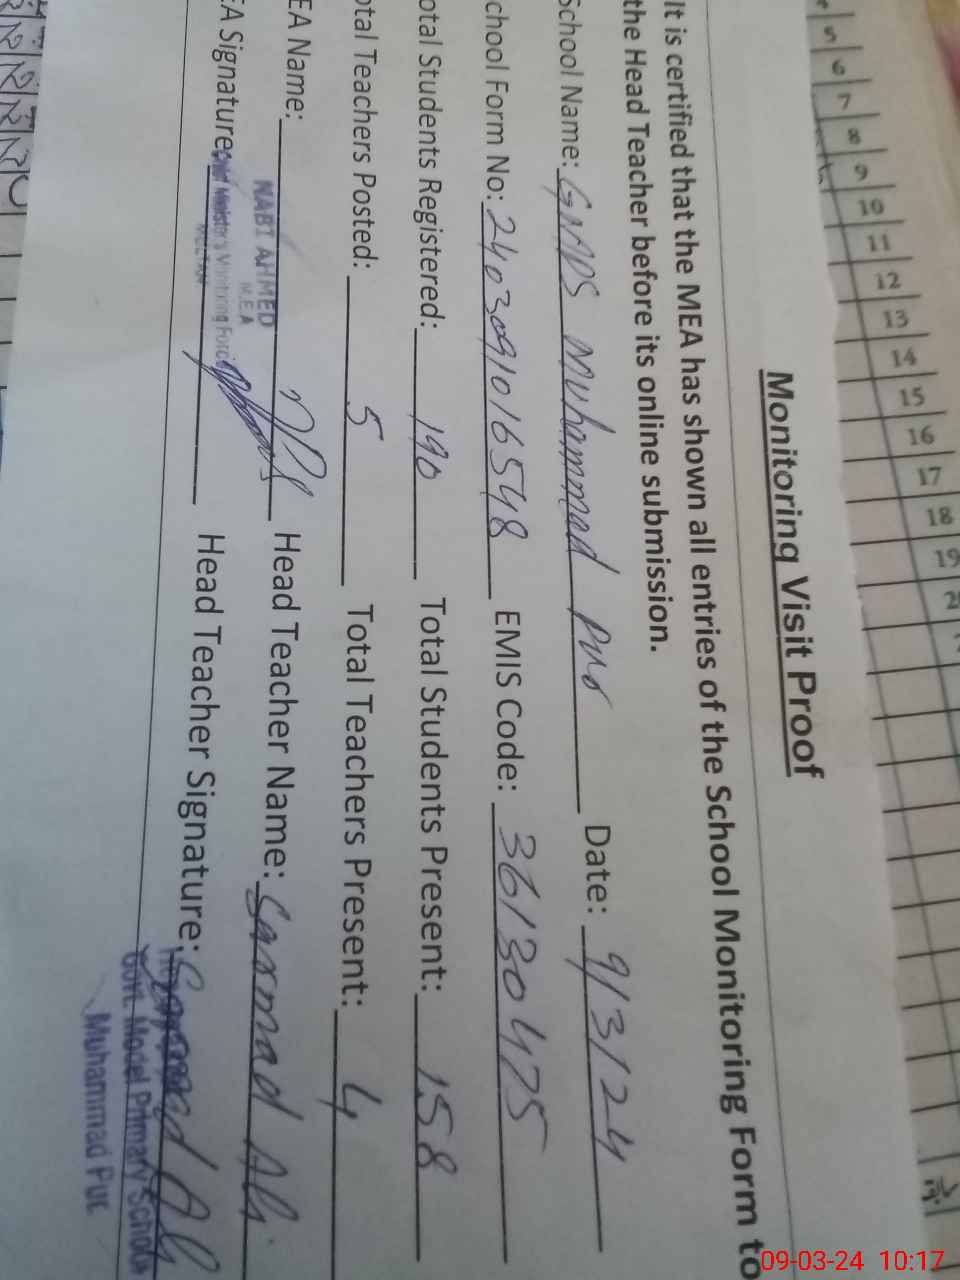 Monitoring Visit Proof
It is certified that the MEA has shown all entries of the School Monitoring Form to
the Head Teacher before its online submission.
School Name: GMPS Muhammad Pur Date: 9/3/24
chool Form No: 2403091016548 EMIS Code: 36130475
otal Students Registered: 190 Total Students Present: 158
otal Teachers Posted: 5 Total Teachers Present: 4
EA Name: Head Teacher Name: Sarmad Ali
NABI AHMED
M.E.A
EA Signature: Head Teacher Signature: Sarmad Ali
Chief Minister's Monitoring Force
MULTAN
Govt. Model Primary School
Muhammad Pur
5 6 7 8 9 10 11 12 13 14 15 16 17 18 19
09-03-24 10:17